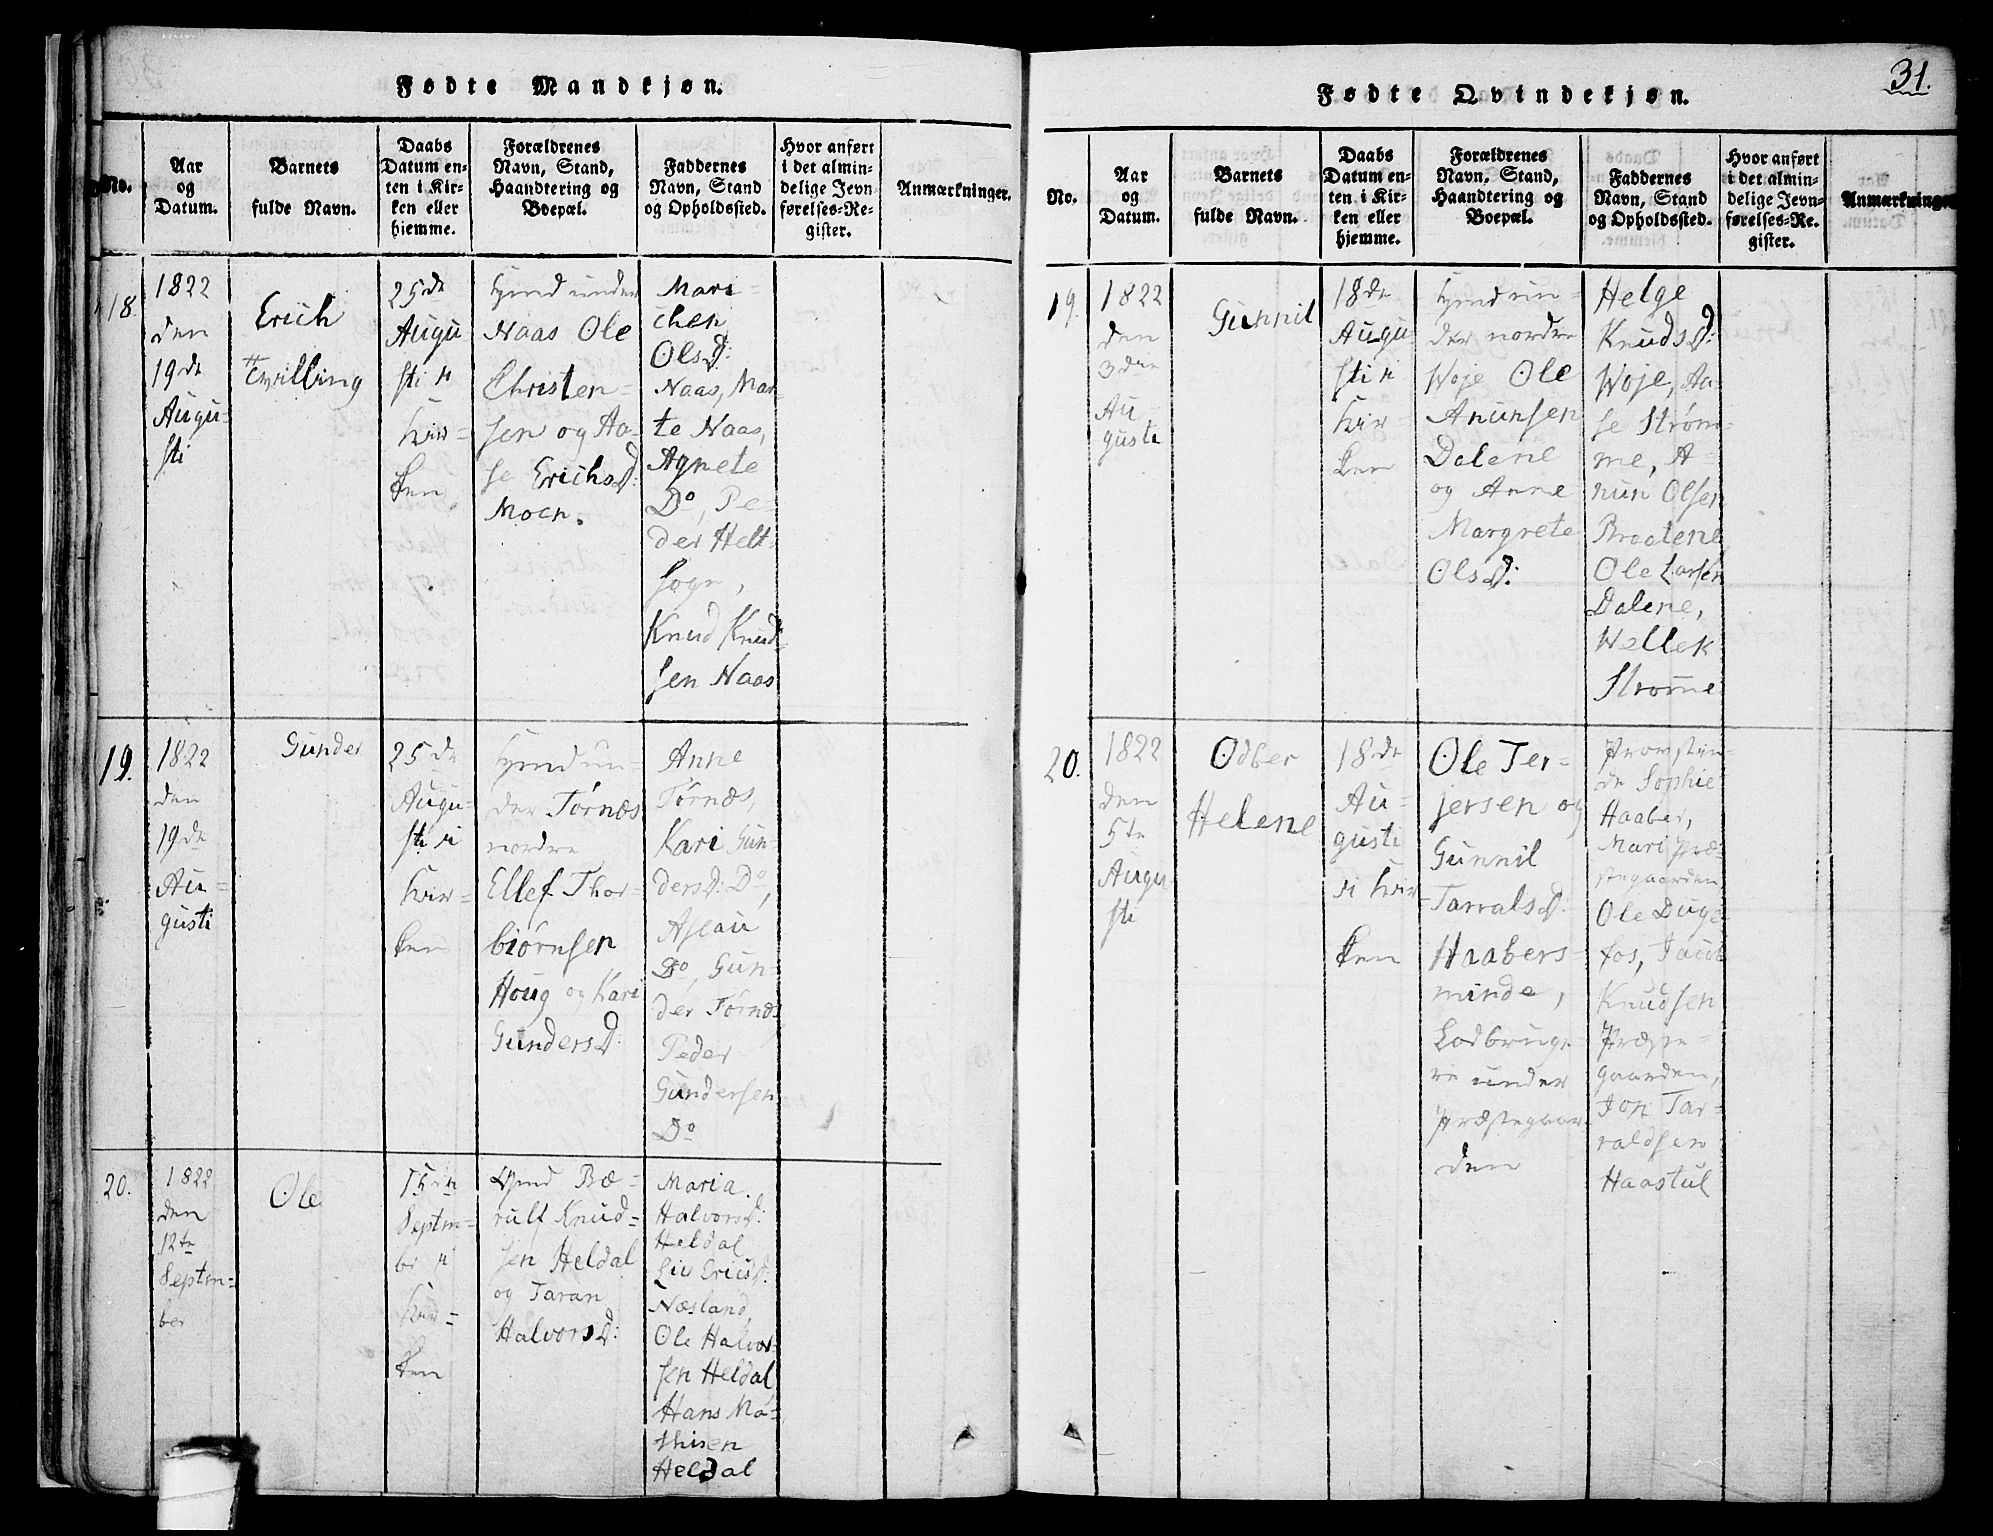 Fødte Mandkjøn.
No.
Aar
og
Datum.
Barnets
fulde Navn.
Daabs
Datum en-
ten i Kir-
ken eller
hjemme.
Forældrenes
Navn, Stand,
Haandtering og
Boepæl.
Faddernes
Navn, Stand
og Opholdssted.
Hvor anført
i det almin-
delige Jevn-
førelses-Re-
gister.
Anmærkninger.
18.
1822
den
19de
Augu-
sti
Erich
Tvilling
25de
Augu
sti i
Kir-
ken
under
Naas Ole
Christen-
sen og Aa-
se Erichsd:
Moen.
Mari-
chen
Olsd:
Naas, Mar
te Naas,
Agnete
Do, Pe-
der Helt-
sogn,
Knud Knud
sen Naas
19.
1822
den
19de
Au-
gusti
Gunder
25de
Augu-
sti i
Kir-
ken
un-
der Tørnæs
nordre
Ellef Thor-
biørnsen
Houg og Kari
Gundersd:
Anne
Tørnæs,
Kari Gun-
dersd: Do,
Aslau
Do, Gun-
der Tørnæs
Peder
Gundersen
Do
20.
1822
den
12te
Septm-
ber
Ole
15de
Septm-
br i
Kir-
ken
Bæ-
rulf Knud-
sen Heldal
og Taran
Halvorsd:
Maria
Halvorsd:
Heldal
Liv Ericsd:
Næsland,
Ole Halvor-
sen Heldal
Hans Ma-
thisen
Heldal
31.
Fødte Qvindekjøn.
No.
Aar
og
Datum.
Barnets
fulde Navn.
Daabs
Datum en-
ten i Kir-
ken eller
hjemme.
Forældrenes
Navn, Stand,
Haandtering og
Boepæl.
Faddernes
Navn, Stand
og Opholdssted.
Hvor anført
i det almin-
delige Jevn-
førelses-Re-
gister.
Anmærkninger
19.
1822
den
3die
Au-
gusti
Gunnil
18de
Augu-
sti i
Kir-
ken
un-
der nordre
Woje Ole
Anunsen
Dalene
og Anne
Margrete
Olsd:
Helge
Knudsd:
Woje, Aa-
se Strøm-
me, A-
nun Olsen
Braatene
Ole Larsen
Dalene,
Wellek
Strømme
20.
1822
den
5te
Augu
sti
Odber
Helene
18de
Au-
gusti
i Kir-
ken
Ole Ter-
jersen og
Gunnil
Tarralsd:
Haabers-
minde,
Lodbruge-
re under
Præstegaar-
den
Provstin-
de Sophie
Haaber,
Mari Præ-
stegaarden,
Ole Duge-
fos, Jacob
Knudsen
Præste-
gaarden,
Jon Tar-
raldsen
Haastul